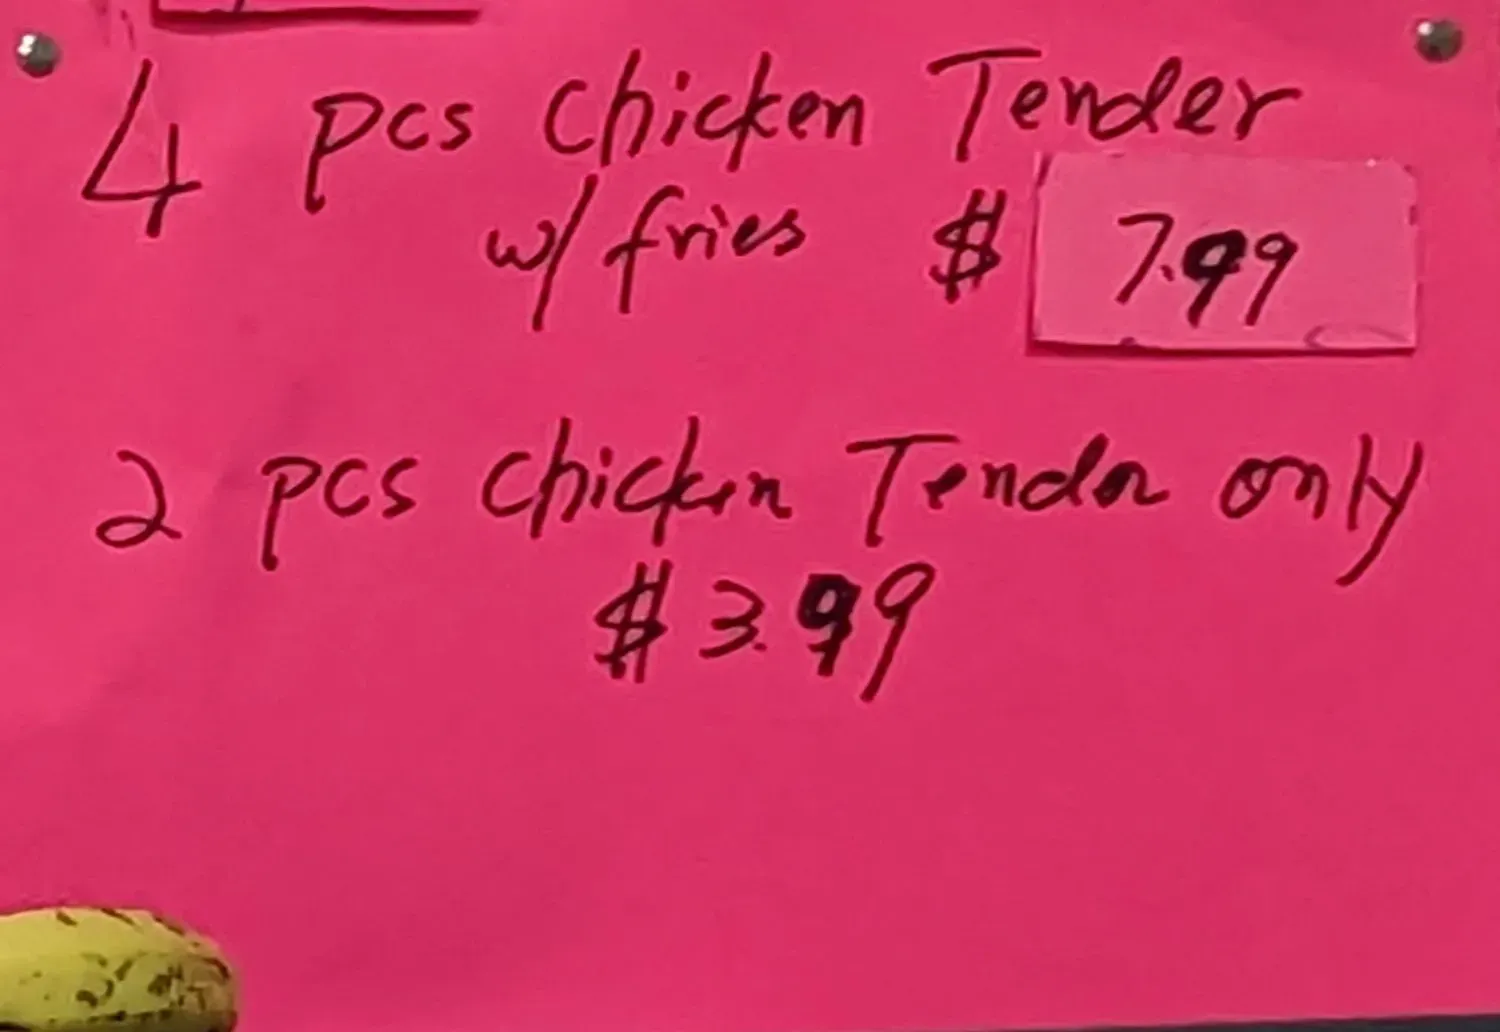 4 pcs chicken Tender
w/ fries $ 7.99
2 pcs chicken Tender only
$3.99